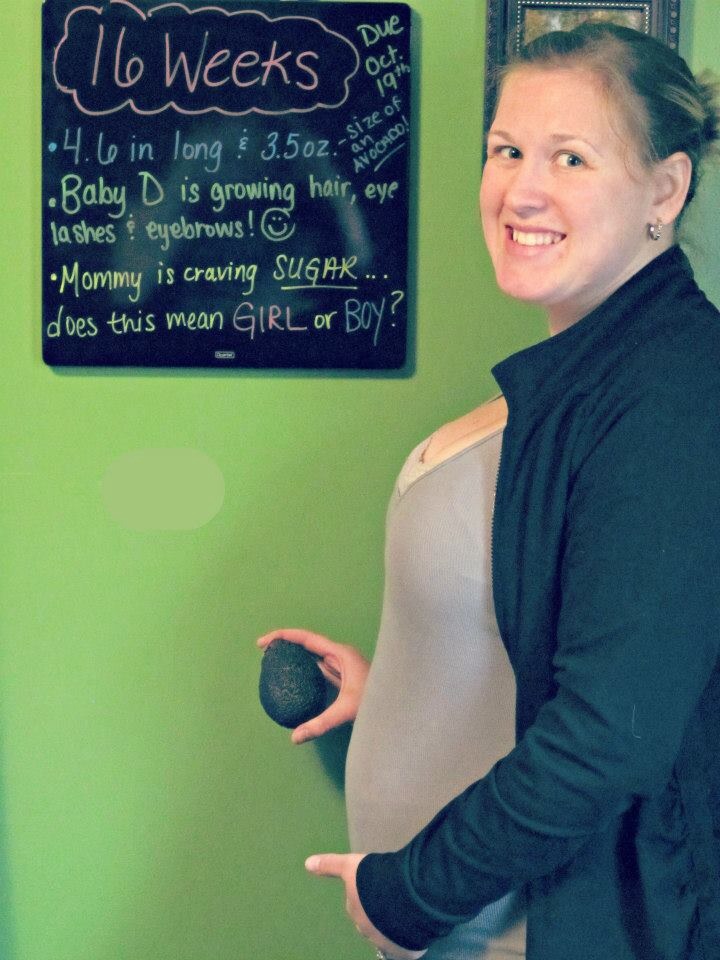 16 Weeks
Due
Oct.
19th
- size of
an
AVOCADO!
• 4.6 in long & 3.5oz.
• Baby D is growing hair, eye
lashes & eyebrows! ☺
• Mommy is craving SUGAR...
does this mean GIRL or BOY?